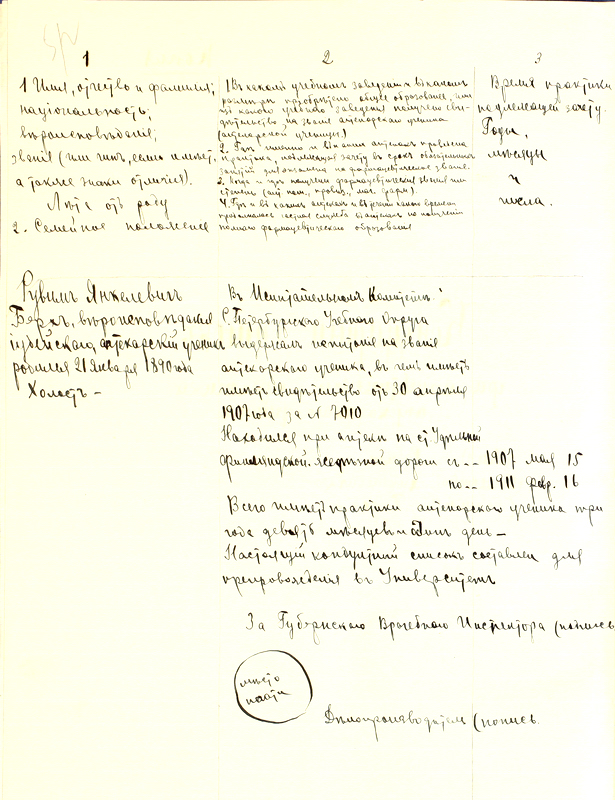 1
2
3
1 Имя, отчество и фамилия;
національность;
вѣроисповѣданіе;
званія (или чинъ, если имѣетъ,
а также знаки отличія).
Лѣта отъ роду
2. Семейное положеніе
1 Въ какомъ учебномъ заведеніи и въ какомъ
размѣрѣ пріобрѣтено общее образованіе, или
изъ какого учебнаго заведенія получено сви-
дѣтельство на званіе аптекарскаго ученика
(аптекарской ученицы)
2. Гдѣ именно и въ какихъ аптекахъ проведена
практика, подлежащая зачету въ срокъ обязательныхъ
занятій для экзамена на фармацевтическое званіе.
3. Когда и гдѣ получилъ фармацевтическія званія или
степени (апт. пом., провиз., маг. фарм.).
4. Гдѣ и въ какихъ аптекахъ и въ теченіи какого времени
продолжалась частная служба въ аптекахъ по полученіи
полнаго фармацевтическаго образованія
Время практики
подлежащей зачету.
Годы,
мѣсяцы
и
числа.
Рувимъ Янкелевичъ
Берхъ, вѣроисповѣданія
іудейскаго, аптекарскій ученикъ
родился 21 Января 1890 года
Холостъ –
Въ Испытательномъ Комитетѣ
С. Петербургскаго Учебнаго Округа
выдержалъ испытаніе на званіе
аптекарскаго ученика, въ чемъ имѣетъ
имѣетъ свидѣтельство отъ 30 апрѣля
1907 года за № 7010
Находился при аптекѣ на ст. Удѣльной
Финляндской желѣзной дороги съ -- 1907 мая 15
по -- 1911 февр. 16
Всего имѣетъ практики аптекарскаго ученика три
года девять мѣсяцевъ и одинъ день –
Настоящій кондуитный списокъ составленъ для
препровожденія въ Университетъ
За Губернскаго Врачебнаго Инспектора (подпись
мѣсто
печати
Дѣлопроизводитель (подпись